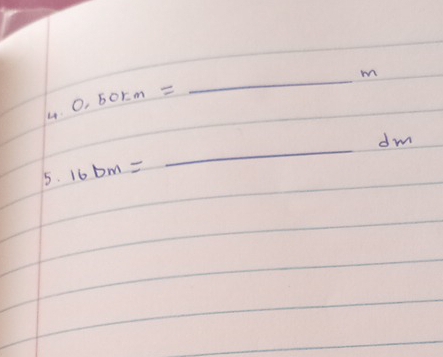 4. 0,50km = __________ m
5. 16 Dm = __________ dm